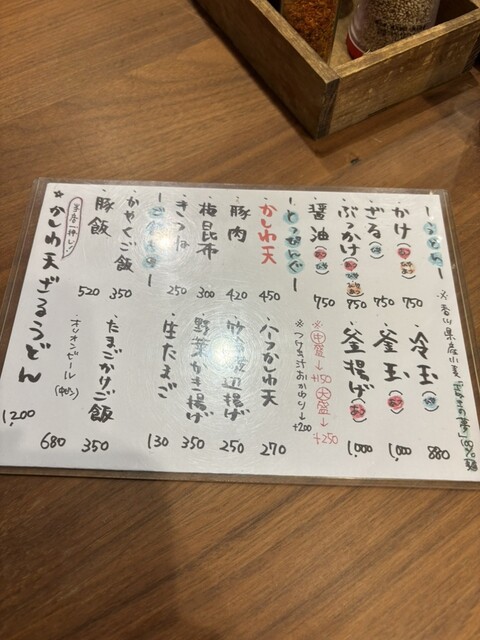 ※香川県産小麦「さぬきの夢」100%麺
ーうどんー
・かけ 750
・ざる 750
・ぶっかけ 750
・醤油 750
・冷玉 880
・釜玉 1,000
・釜揚げ 1,000
※中盛→+150 大盛→+250
※つけ汁おかわり→+200
ーとっぴんぐー
・かしわ天 450
・豚肉 420
・梅昆布 300
・きつね 250
・ハーフかしわ天 270
・竹輪磯辺揚げ 250
・野菜かき揚げ 350
・生たまご 130
ーごはんものー
・かやくご飯 350
・豚飯 520
・たまごかけご飯 350
・オリオンビール(中びん) 680
☆かしわ天ざるうどん 1,200